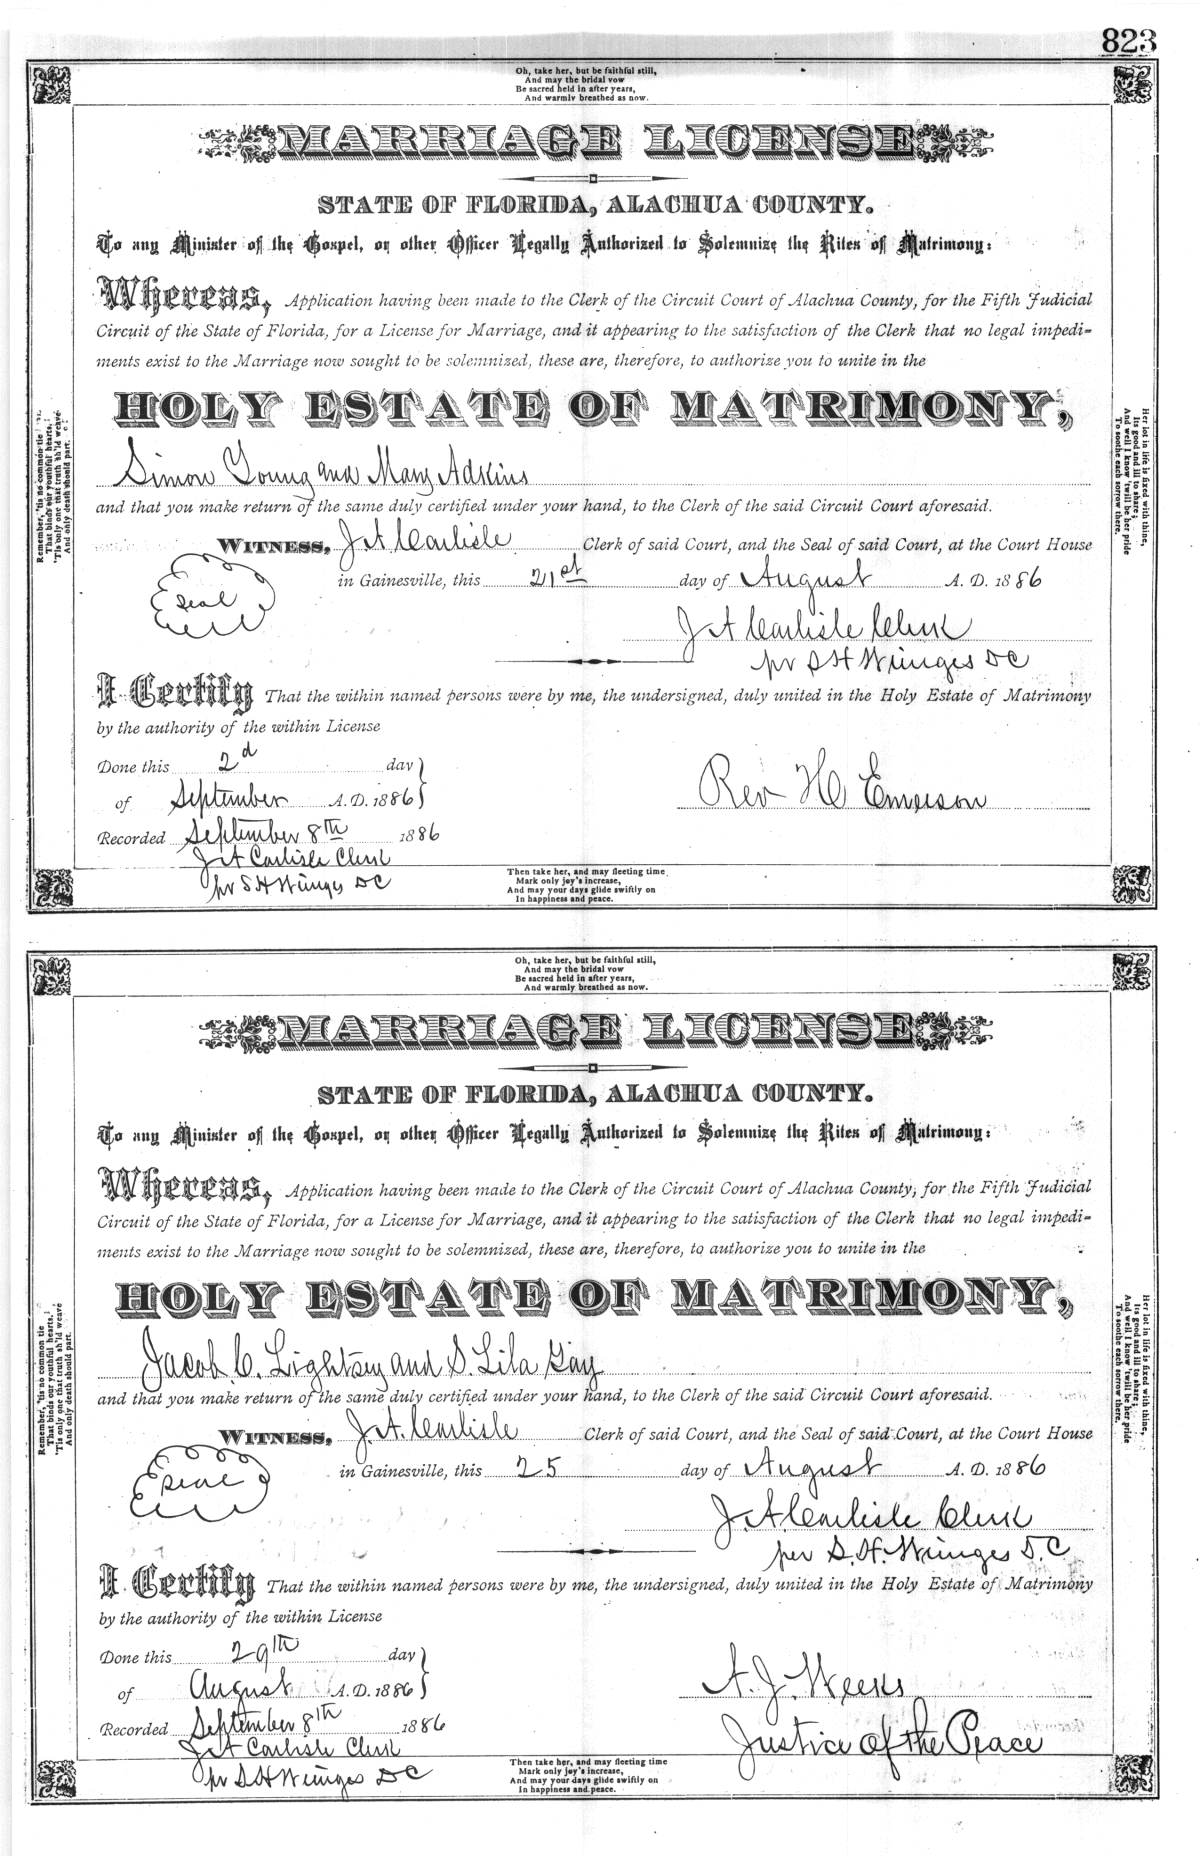 823
Oh, take her, but be faithful still,
And may the bridal vow
Be sacred held in after years,
And warmly breathed as now.
MARRIAGE LICENSE
STATE OF FLORIDA, ALACHUA COUNTY.
To any Minister of the Gospel, or other Officer Legally Authorized to Solemnize the Rites of Matrimony:
Whereas, Application having been made to the Clerk of the Circuit Court of Alachua County, for the Fifth Judicial
Circuit of the State of Florida, for a License for Marriage, and it appearing to the satisfaction of the Clerk that no legal impedi-
ments exist to the Marriage now sought to be solemnized, these are, therefore, to authorize you to unite in the
HOLY ESTATE OF MATRIMONY,
Simon Young and Mary Adkins
and that you make return of the same duly certified under your hand, to the Clerk of the said Circuit Court aforesaid.
WITNESS, J A Carlisle Clerk of said Court, and the Seal of said Court, at the Court House
Seal
in Gainesville, this 21st day of August A. D. 1886
J A Carlisle Clerk
pr S H Wienges DC
I Certify That the within named persons were by me, the undersigned, duly united in the Holy Estate of Matrimony
by the authority of the within License
Done this 2d day
of September A. D. 1886
Rev H Emerson
Recorded September 8th 1886
J A Carlisle Clerk
pr S H Wienges DC
Then take her, and may fleeting time
Mark only joy's increase,
And may your days glide swiftly on
In happiness and peace.
Remember, 'tis no common tie
That binds our youthful hearts,
'Tis only one that truth sh'ld weave
And only death should part.
Her lot in life is fixed with thine,
Its good and ill to share;
And well I know 'twill be her pride
To soothe each sorrow there.
Oh, take her, but be faithful still,
And may the bridal vow
Be sacred held in after years,
And warmly breathed as now.
MARRIAGE LICENSE
STATE OF FLORIDA, ALACHUA COUNTY.
To any Minister of the Gospel, or other Officer Legally Authorized to Solemnize the Rites of Matrimony:
Whereas, Application having been made to the Clerk of the Circuit Court of Alachua County, for the Fifth Judicial
Circuit of the State of Florida, for a License for Marriage, and it appearing to the satisfaction of the Clerk that no legal impedi-
ments exist to the Marriage now sought to be solemnized, these are, therefore, to authorize you to unite in the
HOLY ESTATE OF MATRIMONY,
Jacob C. Lightsey and S. Lila Gay
and that you make return of the same duly certified under your hand, to the Clerk of the said Circuit Court aforesaid.
WITNESS, J. A. Carlisle Clerk of said Court, and the Seal of said Court, at the Court House
Seal
in Gainesville, this 25 day of August A. D. 1886
J. A. Carlisle Clerk
per S. H. Wienges D.C
I Certify That the within named persons were by me, the undersigned, duly united in the Holy Estate of Matrimony
by the authority of the within License
Done this 29th day
of August A. D. 1886
A. J. Weeks
Justice of the Peace
Recorded September 8th 1886
J A Carlisle Clerk
pr S H Wienges DC
Then take her, and may fleeting time
Mark only joy's increase,
And may your days glide swiftly on
In happiness and peace.
Remember, 'tis no common tie
That binds our youthful hearts,
'Tis only one that truth sh'ld weave
And only death should part.
Her lot in life is fixed with thine,
Its good and ill to share;
And well I know 'twill be her pride
To soothe each sorrow there.